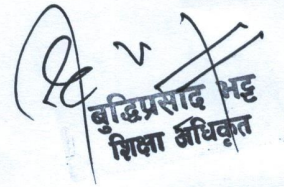 बुद्धिप्रसाद भट्ट
शिक्षा अधिकृत